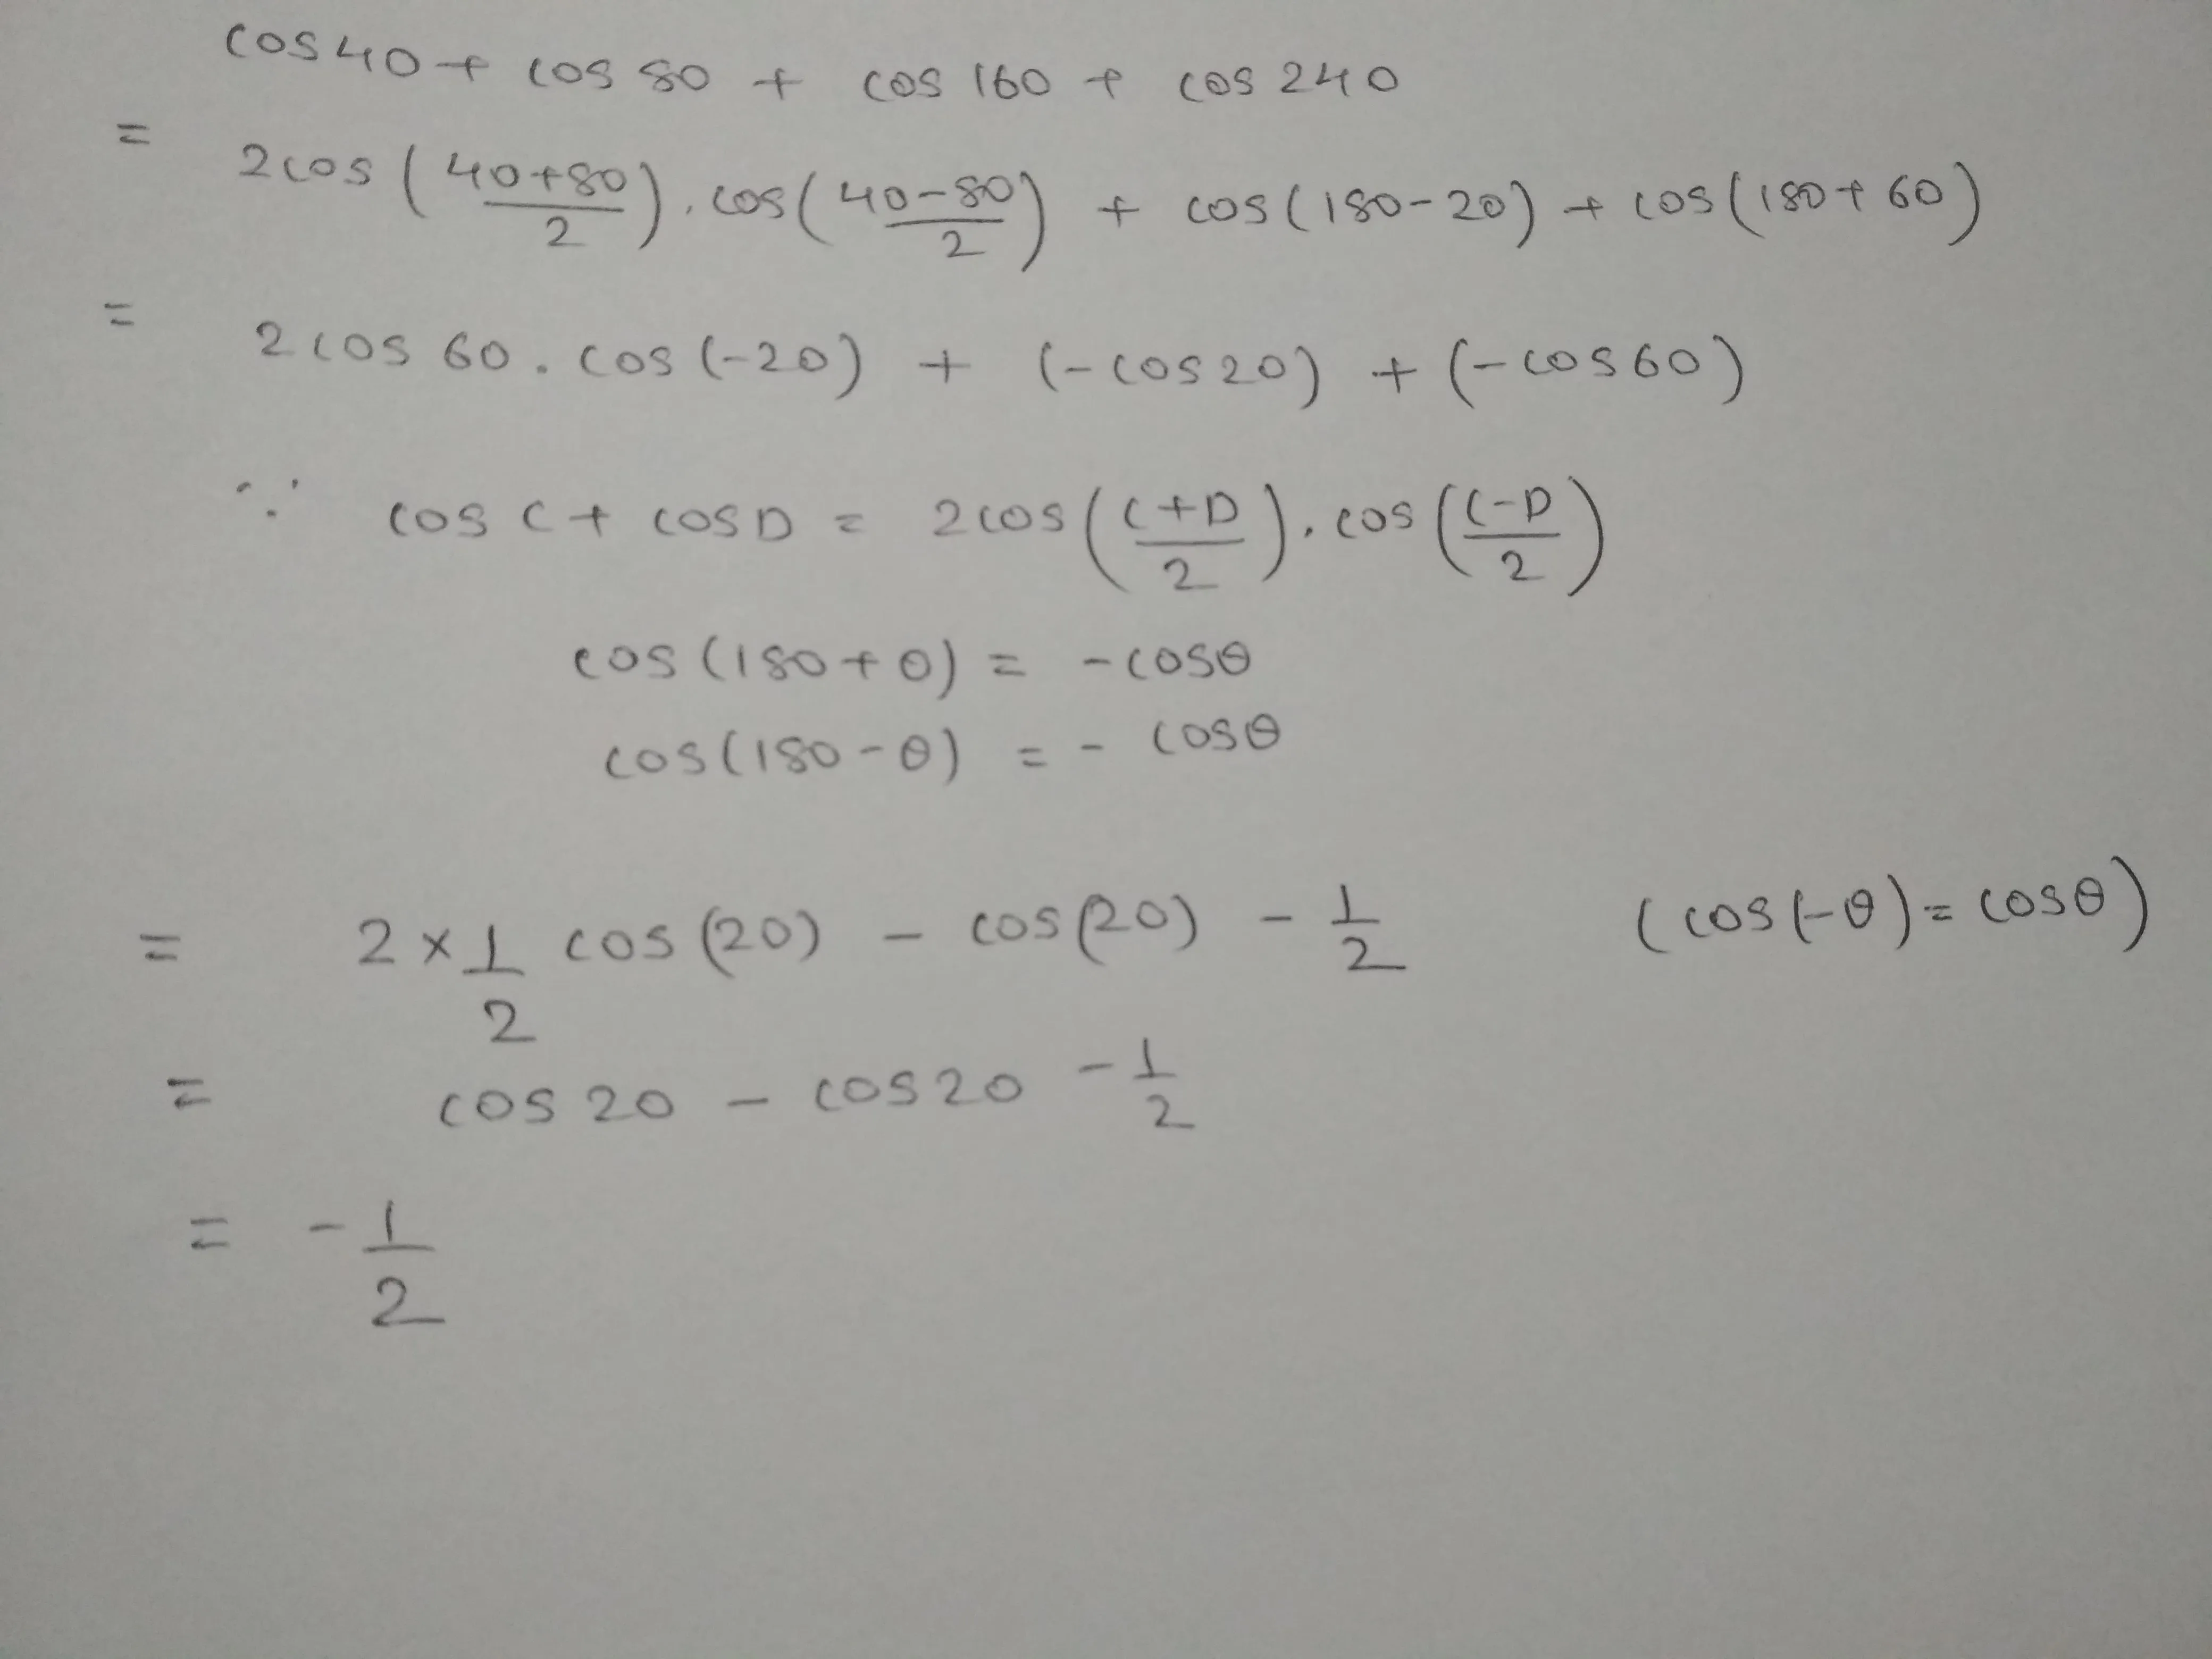 cos 40 + cos 80 + cos 160 + cos 240
= 2cos (40+80/2) . cos (40-80/2) + cos (180-20) + cos (180+60)
= 2cos 60 . cos (-20) + (-cos 20) + (-cos 60)
∵ cos C + cos D = 2cos (C+D/2) . cos (C-D/2)
cos (180+θ) = -cosθ
cos (180-θ) = - cosθ
= 2 × 1/2 cos (20) - cos (20) - 1/2 (cos (-θ) = cosθ)
= cos 20 - cos 20 - 1/2
= - 1/2